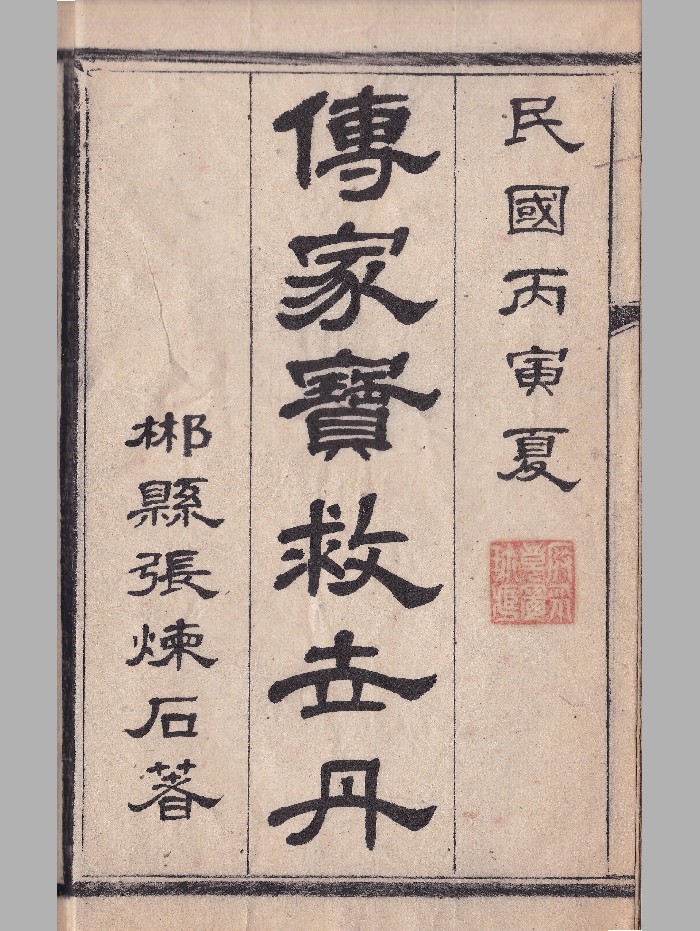 民國丙寅夏
傳家寶救世丹
郴縣張煉石著